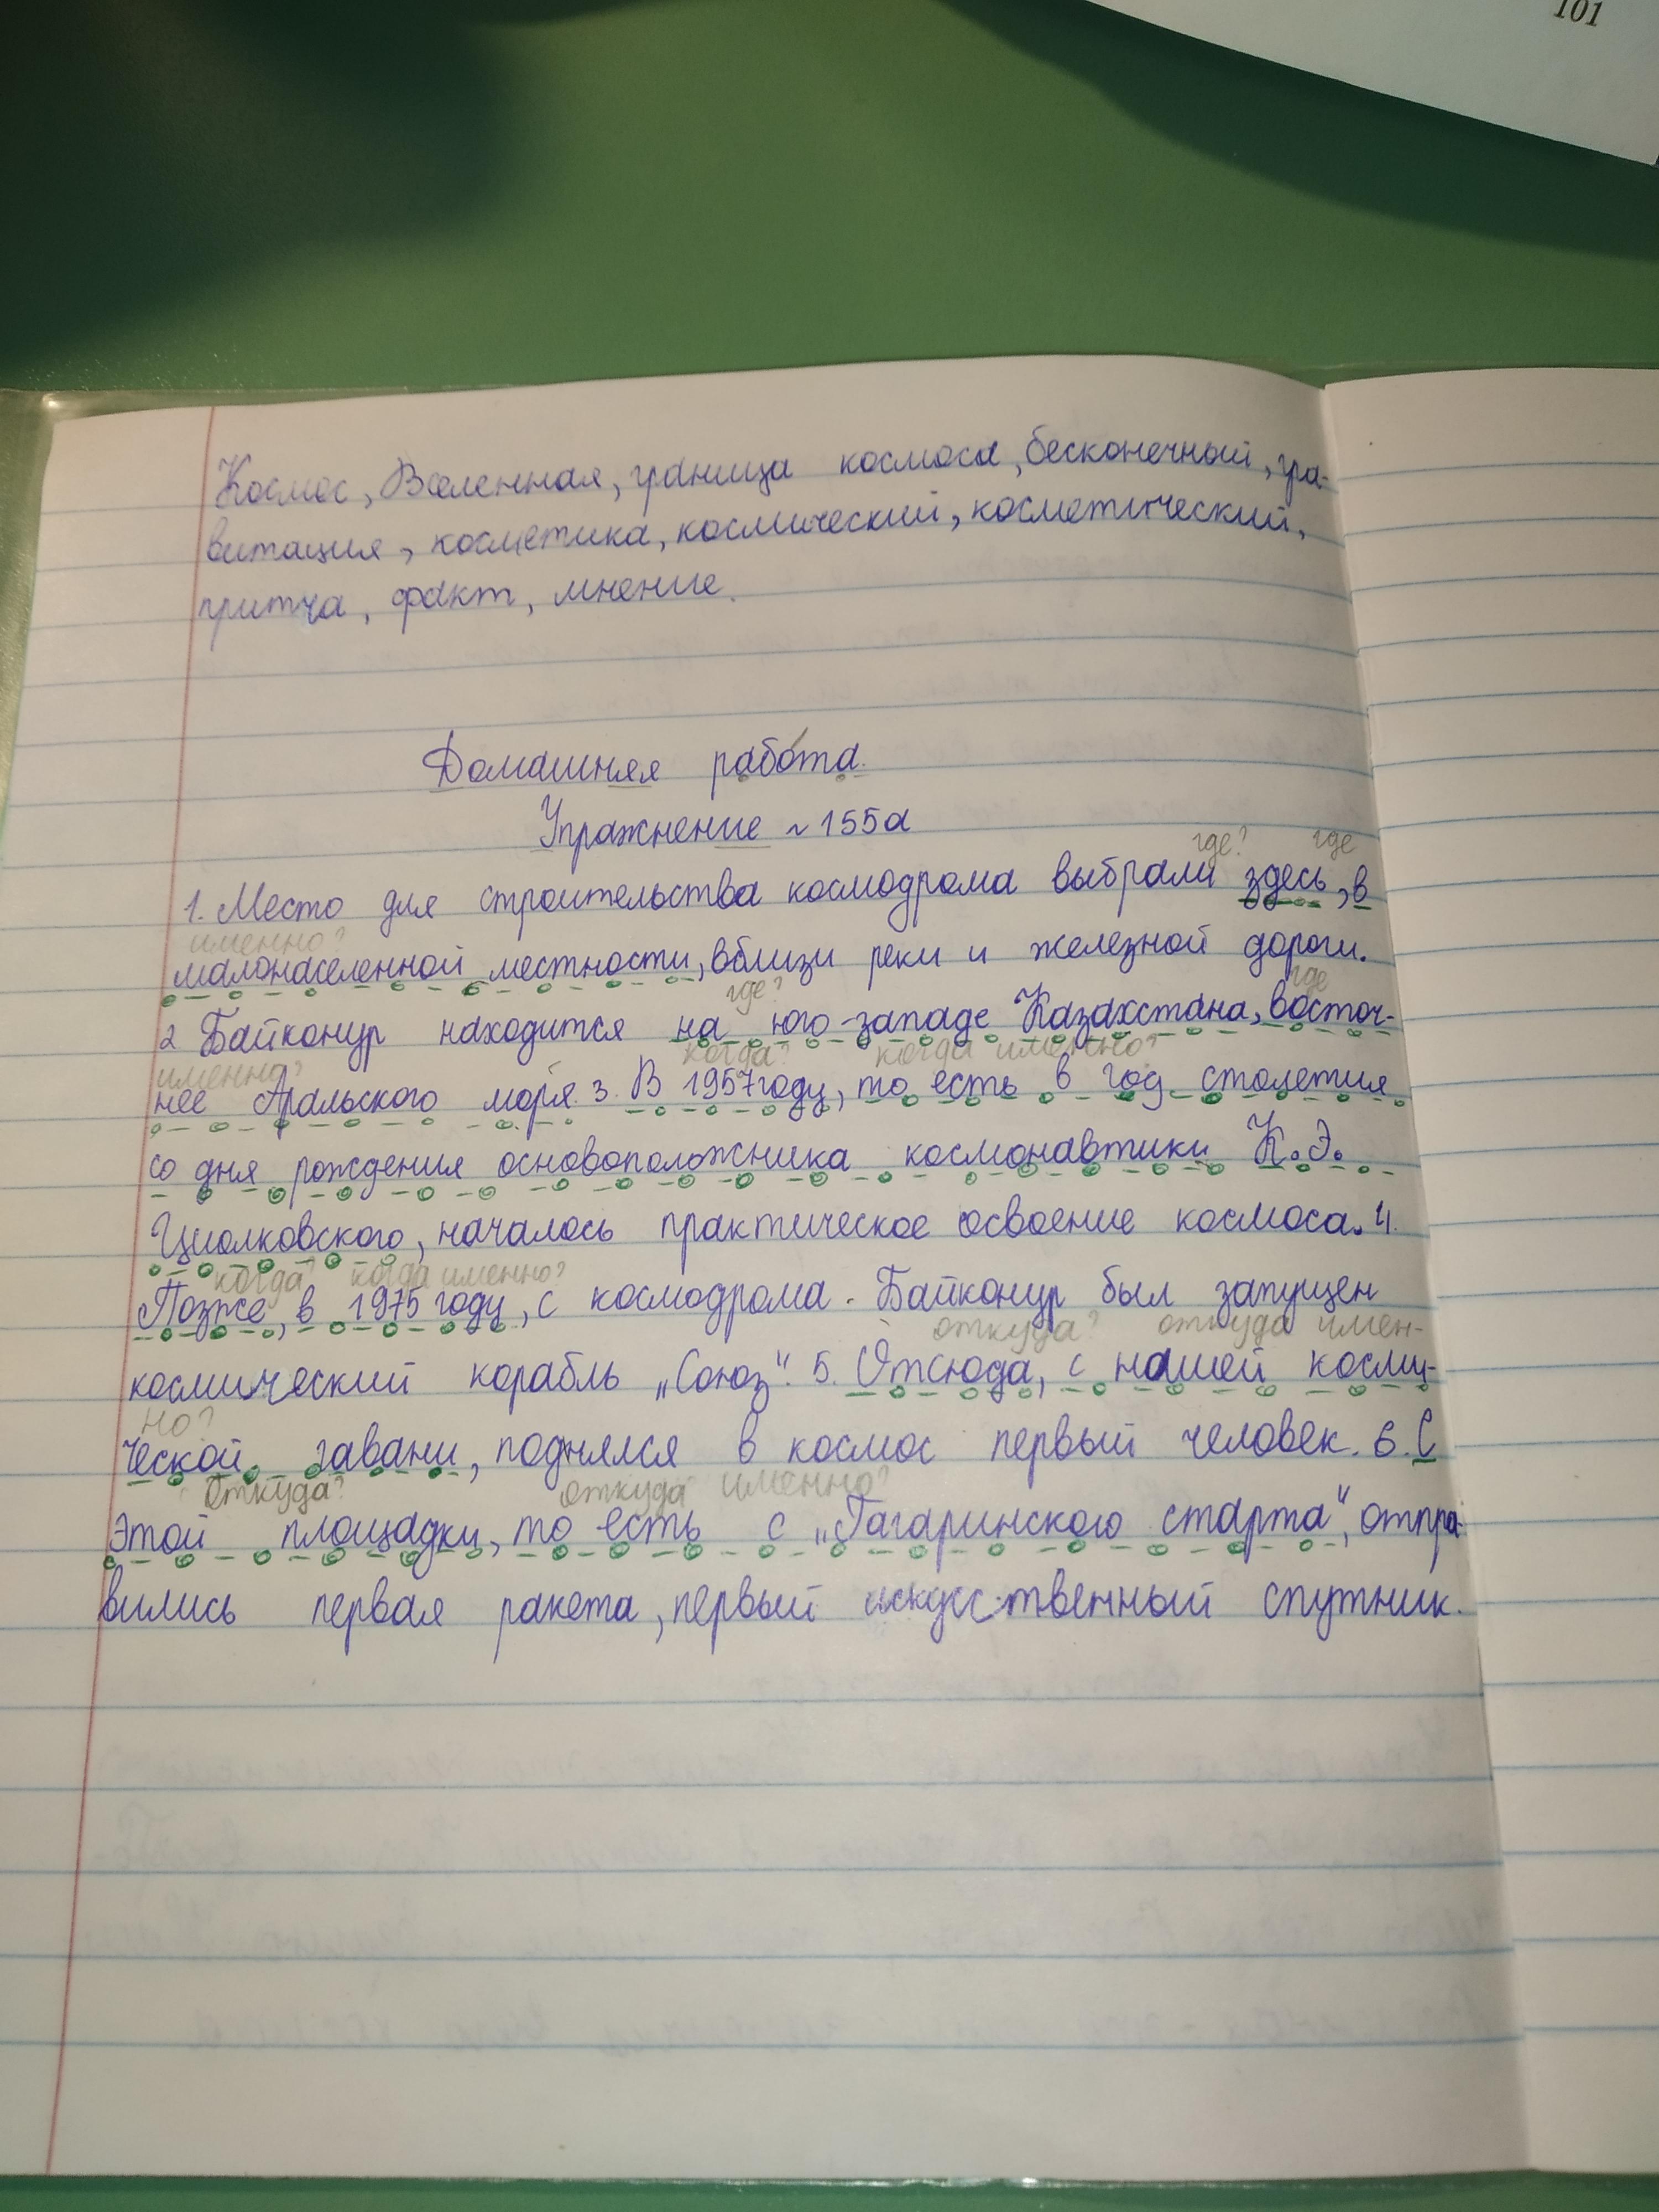 101
Космос, Вселенная, граница космоса, бесконечный, гра-
витация, косметика, космический, косметический,
притча, факт, мнение.
Домашняя работа.
Упражнение ~ 155а
где? где
1. Место для строительства космодрома выбрали здесь, в
именно?
малонаселенной местности, вблизи реки и железной дороги.
где? где
2 Байконур находится на юго-западе Казахстана, восточ-
именно? когда? когда именно?
нее Аральского моря. 3. В 1957 году, то есть в год столетия
со дня рождения основоположника космонавтики К.Э.
Циолковского, началось практическое освоение космоса. 4.
когда? когда именно?
Позже, в 1975 году, с космодрома. Байконур был запущен
откуда? откуда имен-
космический корабль „Союз“. 5. Отсюда, с нашей косми-
но?
ческой гавани, поднялся в космос первый человек. 6. С
откуда? откуда именно?
этой площадки, то есть с „Гагаринского старта“, отпра-
вились первая ракета, первый искусственный спутник.